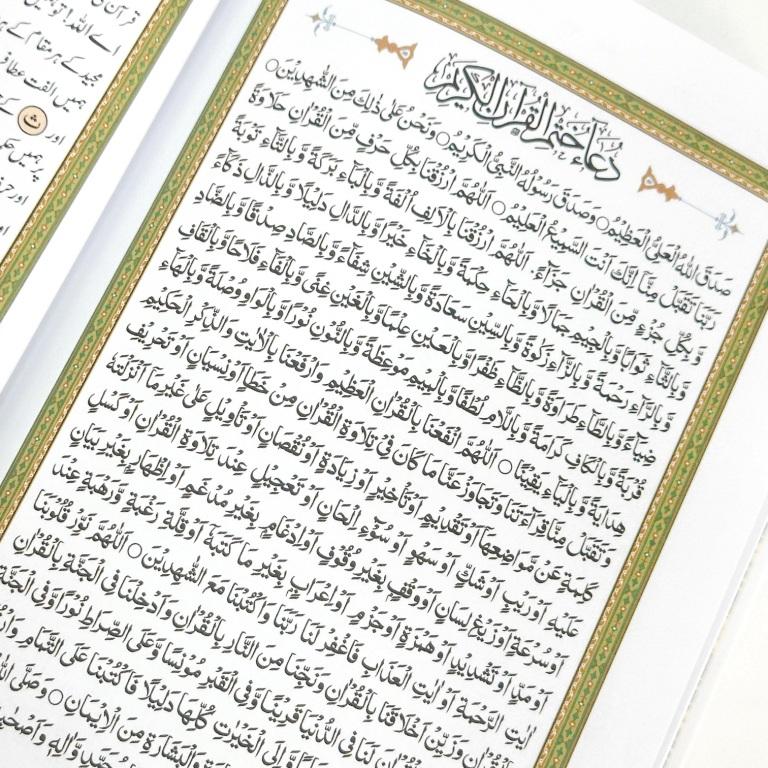 دُعَآءُ خَتْمِ الْقُرْاٰنِ الْكَرِيْمِ
صَدَقَ اللّٰهُ الْعَلِيُّ الْعَظِيْمُ ○ وَصَدَقَ رَسُوْلُهُ النَّبِيُّ الْكَرِيْمُ ○ وَنَحْنُ عَلٰى ذٰلِكَ مِنَ الشّٰهِدِيْنَ ○
رَبَّنَا تَقَبَّلْ مِنَّا اِنَّكَ اَنْتَ السَّمِيْعُ الْعَلِيْمُ ○ اَللّٰهُمَّ ارْزُقْنَا بِكُلِّ حَرْفٍ مِّنَ الْقُرْاٰنِ حَلَاوَةً
وَّ بِكُلِّ جُزْءٍ مِّنَ الْقُرْاٰنِ جَزَآءً. اَللّٰهُمَّ ارْزُقْنَا بِالْاَلِفِ اُلْفَةً وَّ بِالْبَآءِ بَرَكَةً وَّ بِالتَّآءِ تَوْبَةً
وَّ بِالثَّآءِ ثَوَابًا وَّ بِالْجِيْمِ جَمَالًا وَّ بِالْحَآءِ حِكْمَةً وَّ بِالْخَآءِ خَيْرًا وَّ بِالدَّالِ دَلِيْلًا وَّ بِالذَّالِ ذَكَآءً
وَّ بِالرَّآءِ رَحْمَةً وَّ بِالزَّآءِ زَكٰوةً وَّ بِالسِّيْنِ سَعَادَةً وَّ بِالشِّيْنِ شِفَآءً وَّ بِالصَّادِ صِدْقًا وَّ بِالضَّادِ
ضِيَآءً وَّ بِالطَّآءِ طَرَاوَةً وَّ بِالظَّآءِ ظَفْرًا وَّ بِالْعَيْنِ عِلْمًا وَّ بِالْغَيْنِ غِنًى وَّ بِالْفَآءِ فَلَاحًا وَّ بِالْقَافِ
قُرْبَةً وَّ بِالْكَافِ كَرَامَةً وَّ بِاللَّامِ لُطْفًا وَّ بِالْمِيْمِ مَوْعِظَةً وَّ بِالنُّوْنِ نُوْرًا وَّ بِالْوَاوِ وُصْلَةً وَّ بِالْهَآءِ
هِدَايَةً وَّ بِالْيَآءِ يَقِيْنًا ○ اَللّٰهُمَّ انْفَعْنَا بِالْقُرْاٰنِ الْعَظِيْمِ وَارْفَعْنَا بِالْاٰيٰتِ وَالذِّكْرِ الْحَكِيْمِ
وَتَقَبَّلْ مِنَّا قِرَآءَتَنَا وَتَجَاوَزْ عَنَّا مَا كَانَ فِيْ تِلَاوَةِ الْقُرْاٰنِ مِنْ خَطَاٍ اَوْ نِسْيَانٍ اَوْ تَحْرِيْفِ
كَلِمَةٍ عَنْ مَّوَاضِعِهَا اَوْ تَقْدِيْمٍ اَوْ تَاْخِيْرٍ اَوْ زِيَادَةٍ اَوْ نُقْصَانٍ اَوْ تَاْوِيْلٍ عَلٰى غَيْرِ مَا اَنْزَلْتَهٗ
عَلَيْهِ اَوْ رَيْبٍ اَوْ شَكٍّ اَوْ سَهْوٍ اَوْ سُوْٓءِ اِلْحَانٍ اَوْ تَعْجِيْلٍ عِنْدَ تِلَاوَةِ الْقُرْاٰنِ اَوْ كَسَلٍ
اَوْ سُرْعَةٍ اَوْ زَيْغِ لِسَانٍ اَوْ وَقْفٍ بِغَيْرِ وُقُوْفٍ اَوْ اِدْغَامٍ بِغَيْرِ مُدْغَمٍ اَوْ اِظْهَارٍ بِغَيْرِ بَيَانٍ
اَوْ مَدٍّ اَوْ تَشْدِيْدٍ اَوْ هَمْزَةٍ اَوْ جَزْمٍ اَوْ اِعْرَابٍ بِغَيْرِ مَا كَتَبَهٗ اَوْ قِلَّةِ رَغْبَةٍ وَّ رَهْبَةٍ عِنْدَ
اٰيٰتِ الرَّحْمَةِ اَوْ اٰيٰتِ الْعَذَابِ فَاغْفِرْ لَنَا رَبَّنَا وَاكْتُبْنَا مَعَ الشّٰهِدِيْنَ ○ اَللّٰهُمَّ نَوِّرْ قُلُوْبَنَا
بِالْقُرْاٰنِ وَزَيِّنْ اَخْلَاقَنَا بِالْقُرْاٰنِ وَنَجِّنَا مِنَ النَّارِ بِالْقُرْاٰنِ وَاَدْخِلْنَا فِي الْجَنَّةِ بِالْقُرْاٰنِ
لَنَا فِي الدُّنْيَا قَرِيْنًا وَّ فِي الْقَبْرِ مُوْنِسًا وَّ عَلَى الصِّرَاطِ نُوْرًا وَّ فِي الْجَنَّةِ
وَّ اِلَى الْخَيْرٰتِ كُلِّهَا دَلِيْلًا فَاكْتُبْنَا عَلَى التَّمَامِ
وَالْبَشَارَةِ مِنَ الْاِيْمَانِ ○ وَصَلَّى
وَّ اٰلِهٖ وَاَصْحَابِهٖ